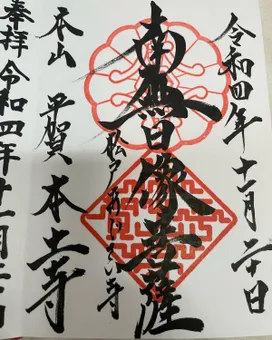 令和四年十一月二十日
南無日像菩薩
松戸あじさい寺
本山 平賀 本土寺
奉拝 令和四年十一月二十